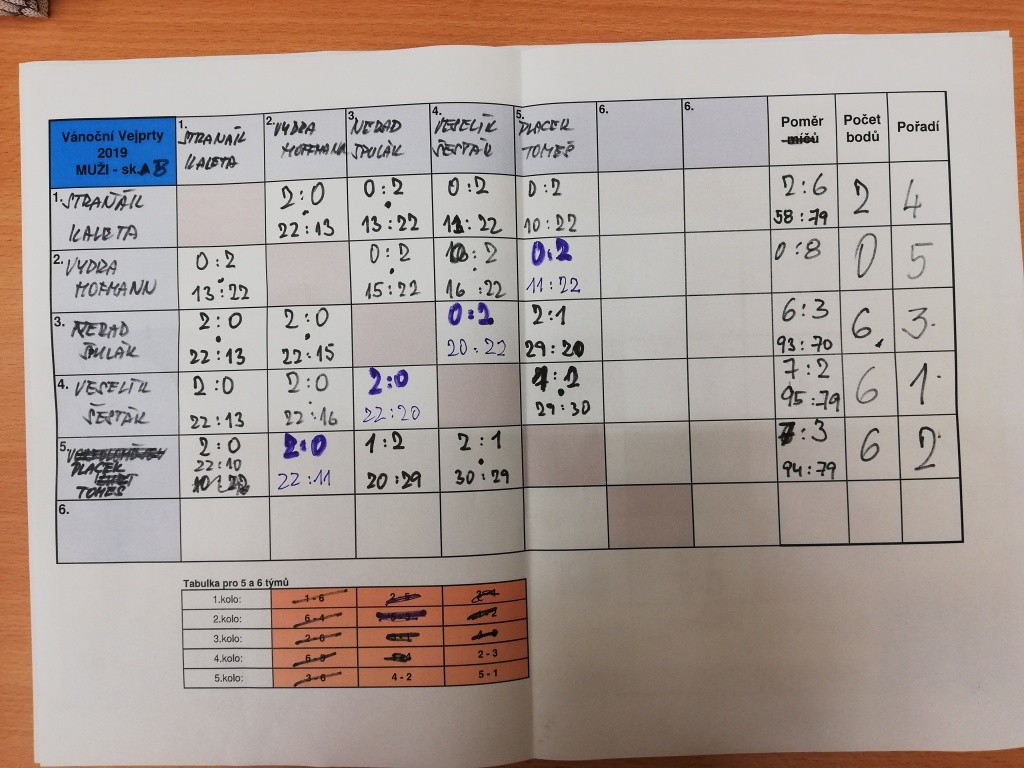 Vánoční Vejprty
2019
MUŽI - sk. B
1. STRAŇÁK
KALETA
2. VYDRA
HOFMANN
3. NEDAD
ŠPULÁK
4. VESELÍK
ŠESTÁK
5. PLACEK
TOMEŠ
6.
6.
Poměr
míčů
Počet
bodů
Pořadí
1. STRAŇÁK
KALETA
2:0
22:13
0:2
13:22
0:2
13:22
0:2
10:22
2:6
58:79
2
4
2. VYDRA
HOFMANN
0:2
13:22
0:2
15:22
0:2
16:22
0:2
11:22
0:8
0
5
3. NEDAD
ŠPULÁK
2:0
22:13
2:0
22:15
0:2
20:22
2:1
29:20
6:3
93:70
6
3.
4. VESELÍK
ŠESTÁK
2:0
22:13
2:0
22:16
2:0
22:20
1:2
29:30
7:2
95:79
6
1.
5.
PLACEK
TOMEŠ
2:0
22:10
2:0
22:11
1:2
20:29
2:1
30:29
7:3
94:79
6
2.
6.
Tabulka pro 5 a 6 týmů
1.kolo: 1 - 6 2 - 5 3 - 4
2.kolo: 6 - 4
3.kolo: 2 - 6
4.kolo: 2 - 3
5.kolo: 3 - 6 4 - 2 5 - 1